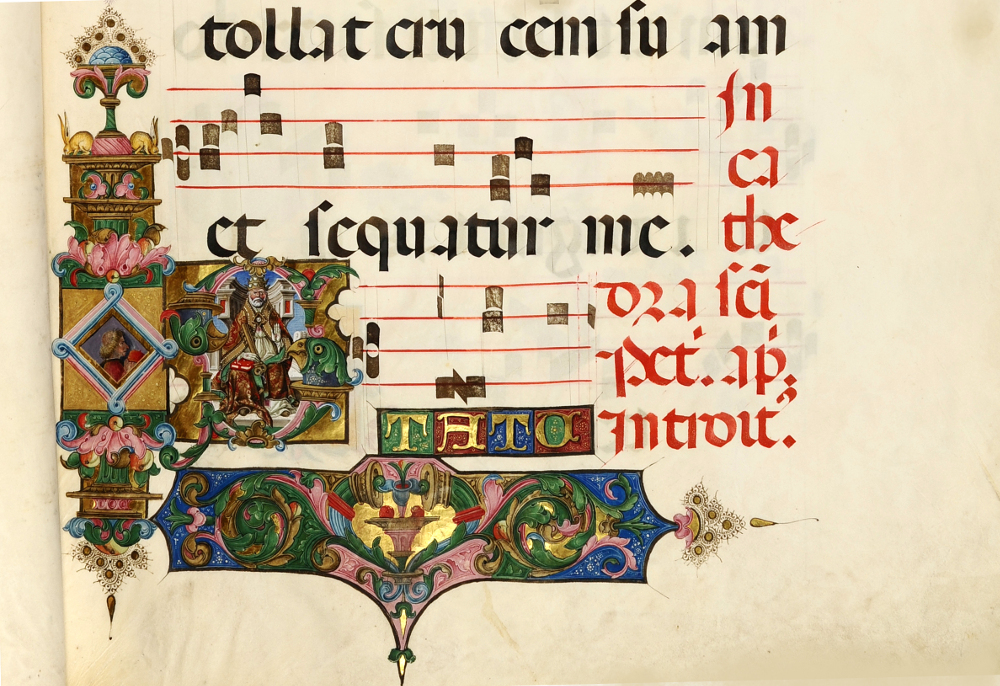 tollat cru cem su am
In
ca
et sequatur me.
the
dra sc̄i
Pet. ap.
Introit.
STATU